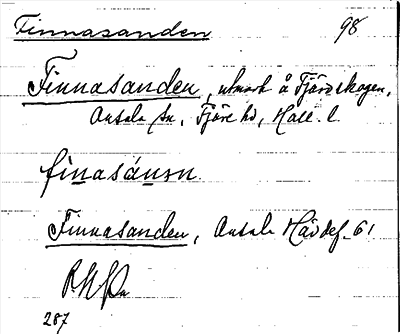 Finnasanden 98
Finnasanden, utmark å Fjärdskogen,
Onsala sn, Fjäre hd, Hall. l.
finasánn
Finnasanden, Onsala Häv def. 61
287